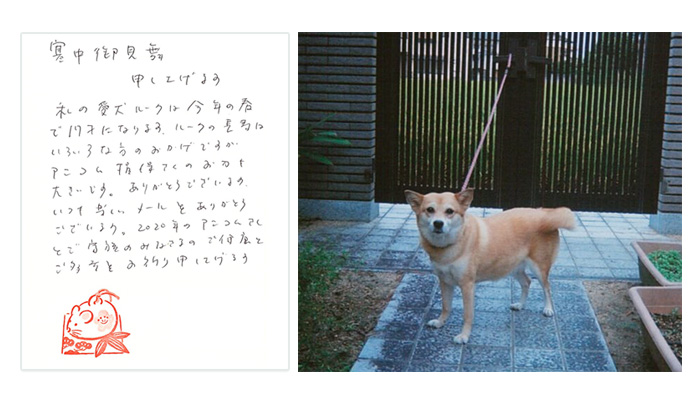 寒中御見舞
申し上げます
私の愛犬ルークは今年の春
で17才になります。ルークの長寿は
いろいろな方のおかげですが
アニコム損保さんのお力も
大きいです。ありがとうございます。
いつも楽しいメールをありがとう
ございます。2020年のアニコムさん
とご家族のみなさまのご健康と
ご多幸をお祈り申し上げます